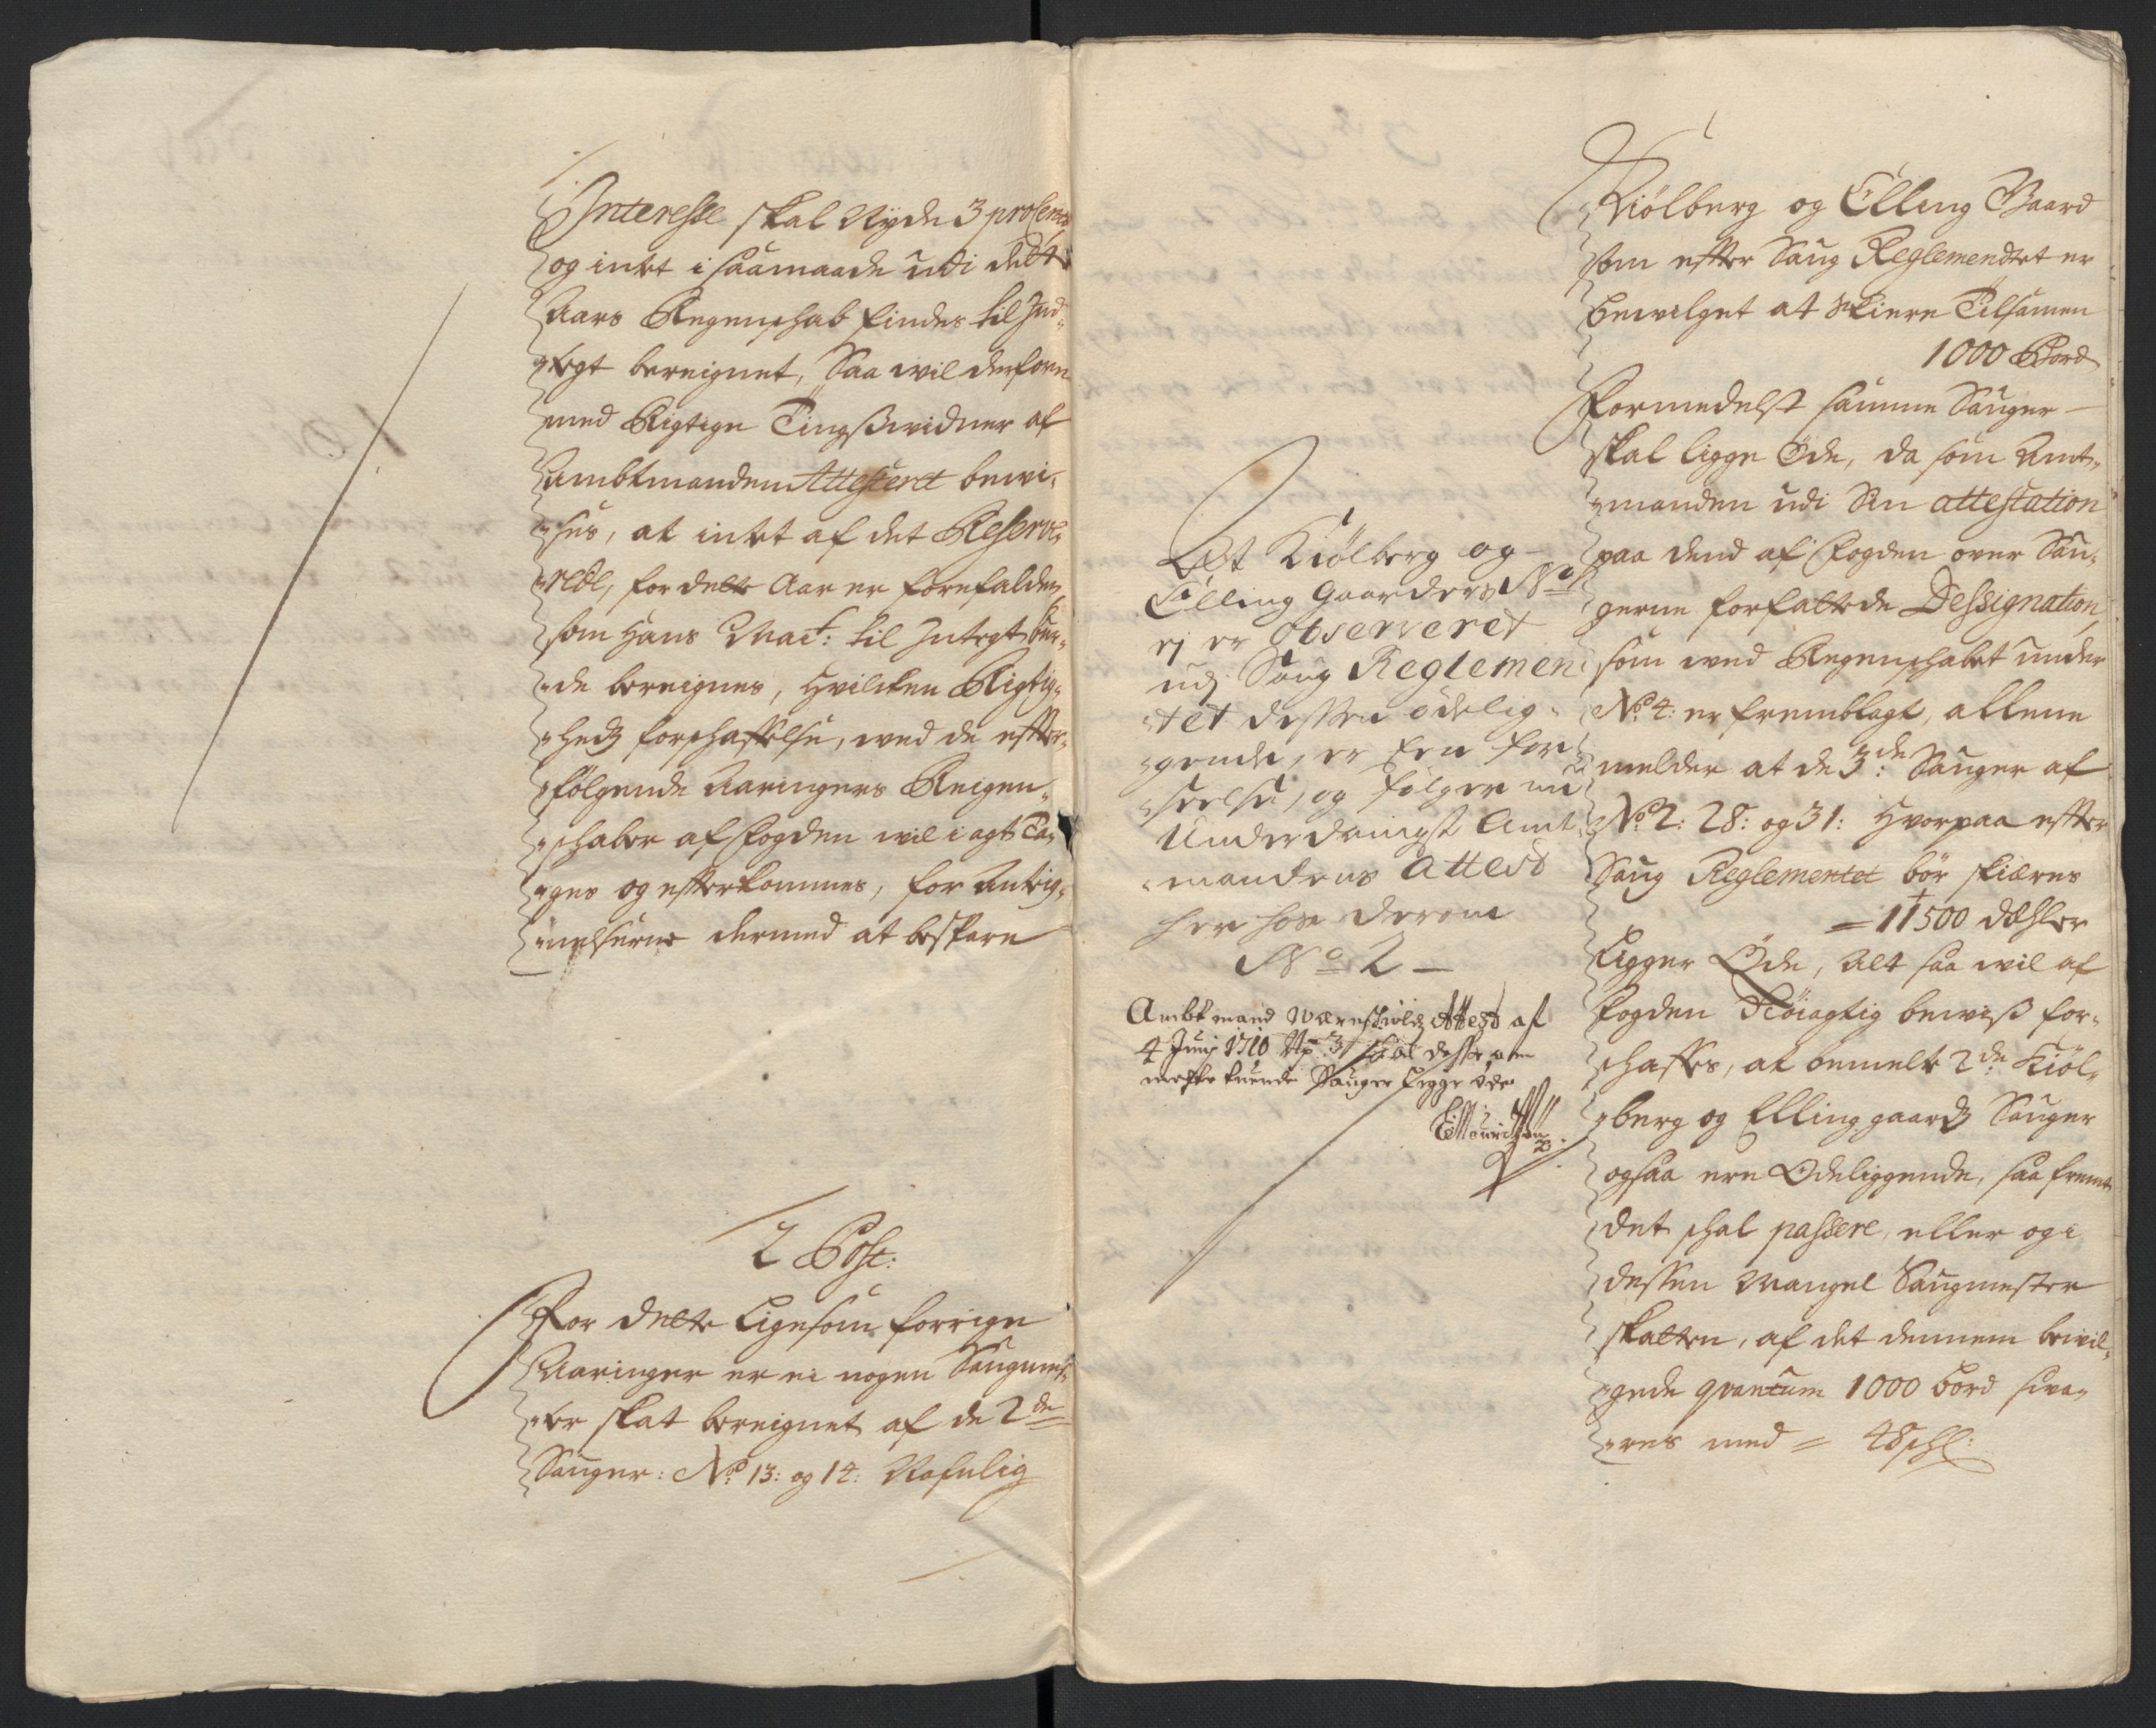 Interesse skal Nyde 3 prosento
og intet i saamaade udi dette
Aars Regenschab findes til Ind-
tegt bereignet, Saa wil derforre
med Rigtige Tingswidner af
Ambtmanden Attesteret bewi-
ses, at intet af det Reserve-
rede, for dette Aar er forefalden,
som Hans Mai:t til Indtegt bur-
de bereignes, Hvilcken Rigtig-
heds forschaffelse, med de effter-
følgende Aaringers Reigen-
schaber af fogden wil i agt Ta-
ges og efterkommes, for Antig-
nelserne dermed at bespare
2 Post:
For dette Ligesom forrige
Aaringer er ei nogen Saugmest-
er skat bereignet af de 2de
Sauger: No 13: og 14: Nafnlig
At Kiølberg og
Elling Gaarders No
ej er observeret
udj Saug Reglemen-
tet dessen ödelig-
gende, er Een for-
seelse, og følger nu
Underdanigst Amt-
mandens Attest
her hos derom
No 2
Ambtmand Wærnschiolds Attest af
4 Junij 1710 skal desse om
melte tuende Sauger Ligge öde
Kiölberg og Elling Gaard
som effter Saug Reglementet er
bewilget at skiere Tilsamen
1000 Bord
Formedelst samme Sauger
skal ligge Öde, da som Amt-
manden udi Sin attestation
paa dend af Fogden over Sau-
gerne forfattede Dessignation,
som wed Regenschabet under
No 4: er fremblagt, allene
melder at de 3de: Sauger af
No 2: 28: og 31: Hvorpaa effter
Saug Reglementet bör skiæres
= 11500 dæhler
Ligger Öde, Alt saa wil af
fogden Nöiagtig bewiss for-
schaffes, at bemelte 2de Kiöl-
berg og Elling gaards Sauger
ogsaa ere Ödeliggende, saa fremt
det schal passere, eller og i
dessen Mangel Saugmester
skatten, af det dennem bewil-
gede qvantum 1000 bord swa-
res med = 48 schl: